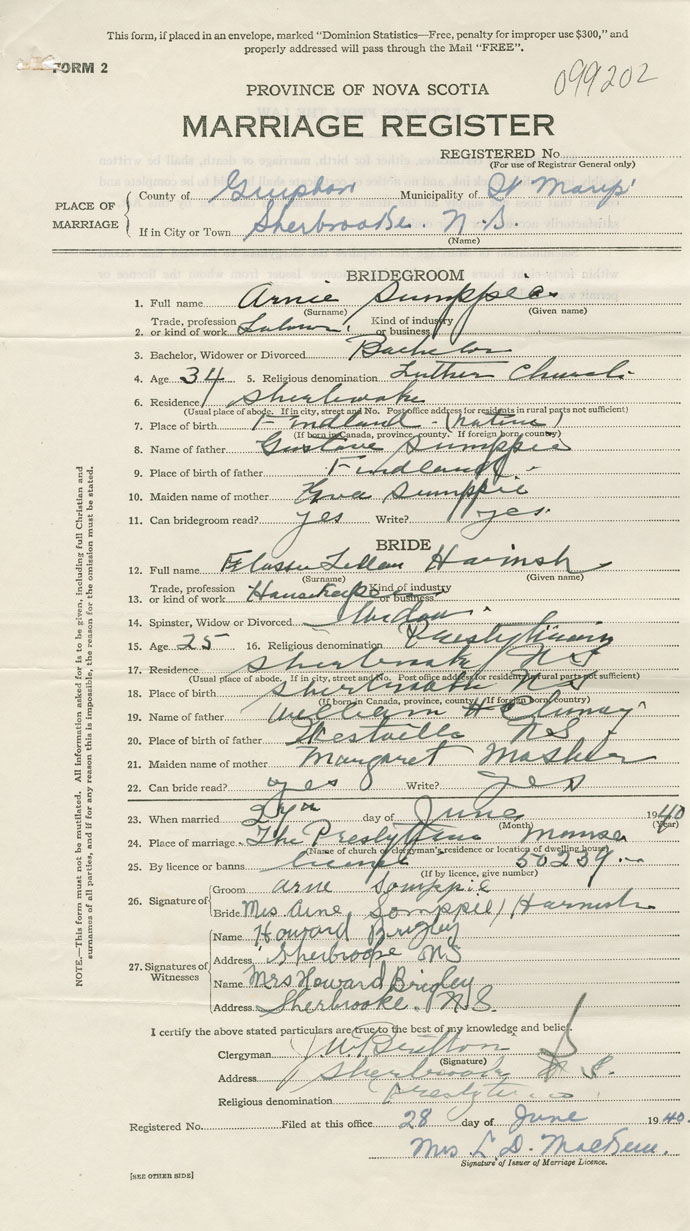 This form, if placed in an envelope, marked "Dominion Statistics—Free, penalty for improper use $300," and
properly addressed will pass through the Mail "FREE".
FORM 2
099202
PROVINCE OF NOVA SCOTIA
MARRIAGE REGISTER
REGISTERED No.
(For use of Registrar General only)
PLACE OF MARRIAGE
County of Municipality of St Marys
If in City or Town Sherbrooke. N.S.
(Name)
BRIDEGROOM
1. Full name Arnie Sumppie
(Surname) (Given name)
2. Trade, profession or kind of work Kind of industry or business
3. Bachelor, Widower or Divorced Bachelor
4. Age 34 5. Religious denomination Luther Church
6. Residence Sherbrooke
(Usual place of abode. If in city, street and No. Post office address for residents in rural parts not sufficient)
7. Place of birth Findland (native)
(If born in Canada, province, county. If foreign born, country)
8. Name of father Gustave Sumppie
9. Place of birth of father Findland
10. Maiden name of mother Eva Sumppie
11. Can bridegroom read? yes Write? yes.
BRIDE
12. Full name Harnish
(Surname) (Given name)
13. Trade, profession or kind of work Housekeeper Kind of industry or business
14. Spinster, Widow or Divorced Widow
15. Age 25 16. Religious denomination Presbyterian
17. Residence Sherbrooke NS
(Usual place of abode. If in city, street and No. Post office address for residents in rural parts not sufficient)
18. Place of birth Sherbrooke NS
(If born in Canada, province, county. If foreign born, country)
19. Name of father William H
20. Place of birth of father Westville NS
21. Maiden name of mother Margaret Mosher
22. Can bride read? yes Write? yes
23. When married day of June 1940
(Month) (Year)
24. Place of marriage The Presbyterian Manse
(Name of church or clergyman's residence or location of dwelling house)
25. By licence or banns license 50239
(If by licence, give number)
26. Signature of Groom Arne Somppie
Bride Mrs Arne Somppie / Harnish
27. Signatures of Witnesses Name Howard Brigley
Address Sherbrooke NS
Name Mrs Howard Brigley
Address Sherbrooke. N.S.
I certify the above stated particulars are true to the best of my knowledge and belief.
Clergyman
(Signature)
Address Sherbrooke N.S.
Religious denomination
Registered No. Filed at this office 28 day of June 1940.
Mrs L D.
Signature of Issuer of Marriage Licence.
[SEE OTHER SIDE]
NOTE.—This form must not be mutilated. All information asked for is to be given, including full Christian and
surnames of all parties, and if for any reason this is impossible, the reason for the omission must be stated.